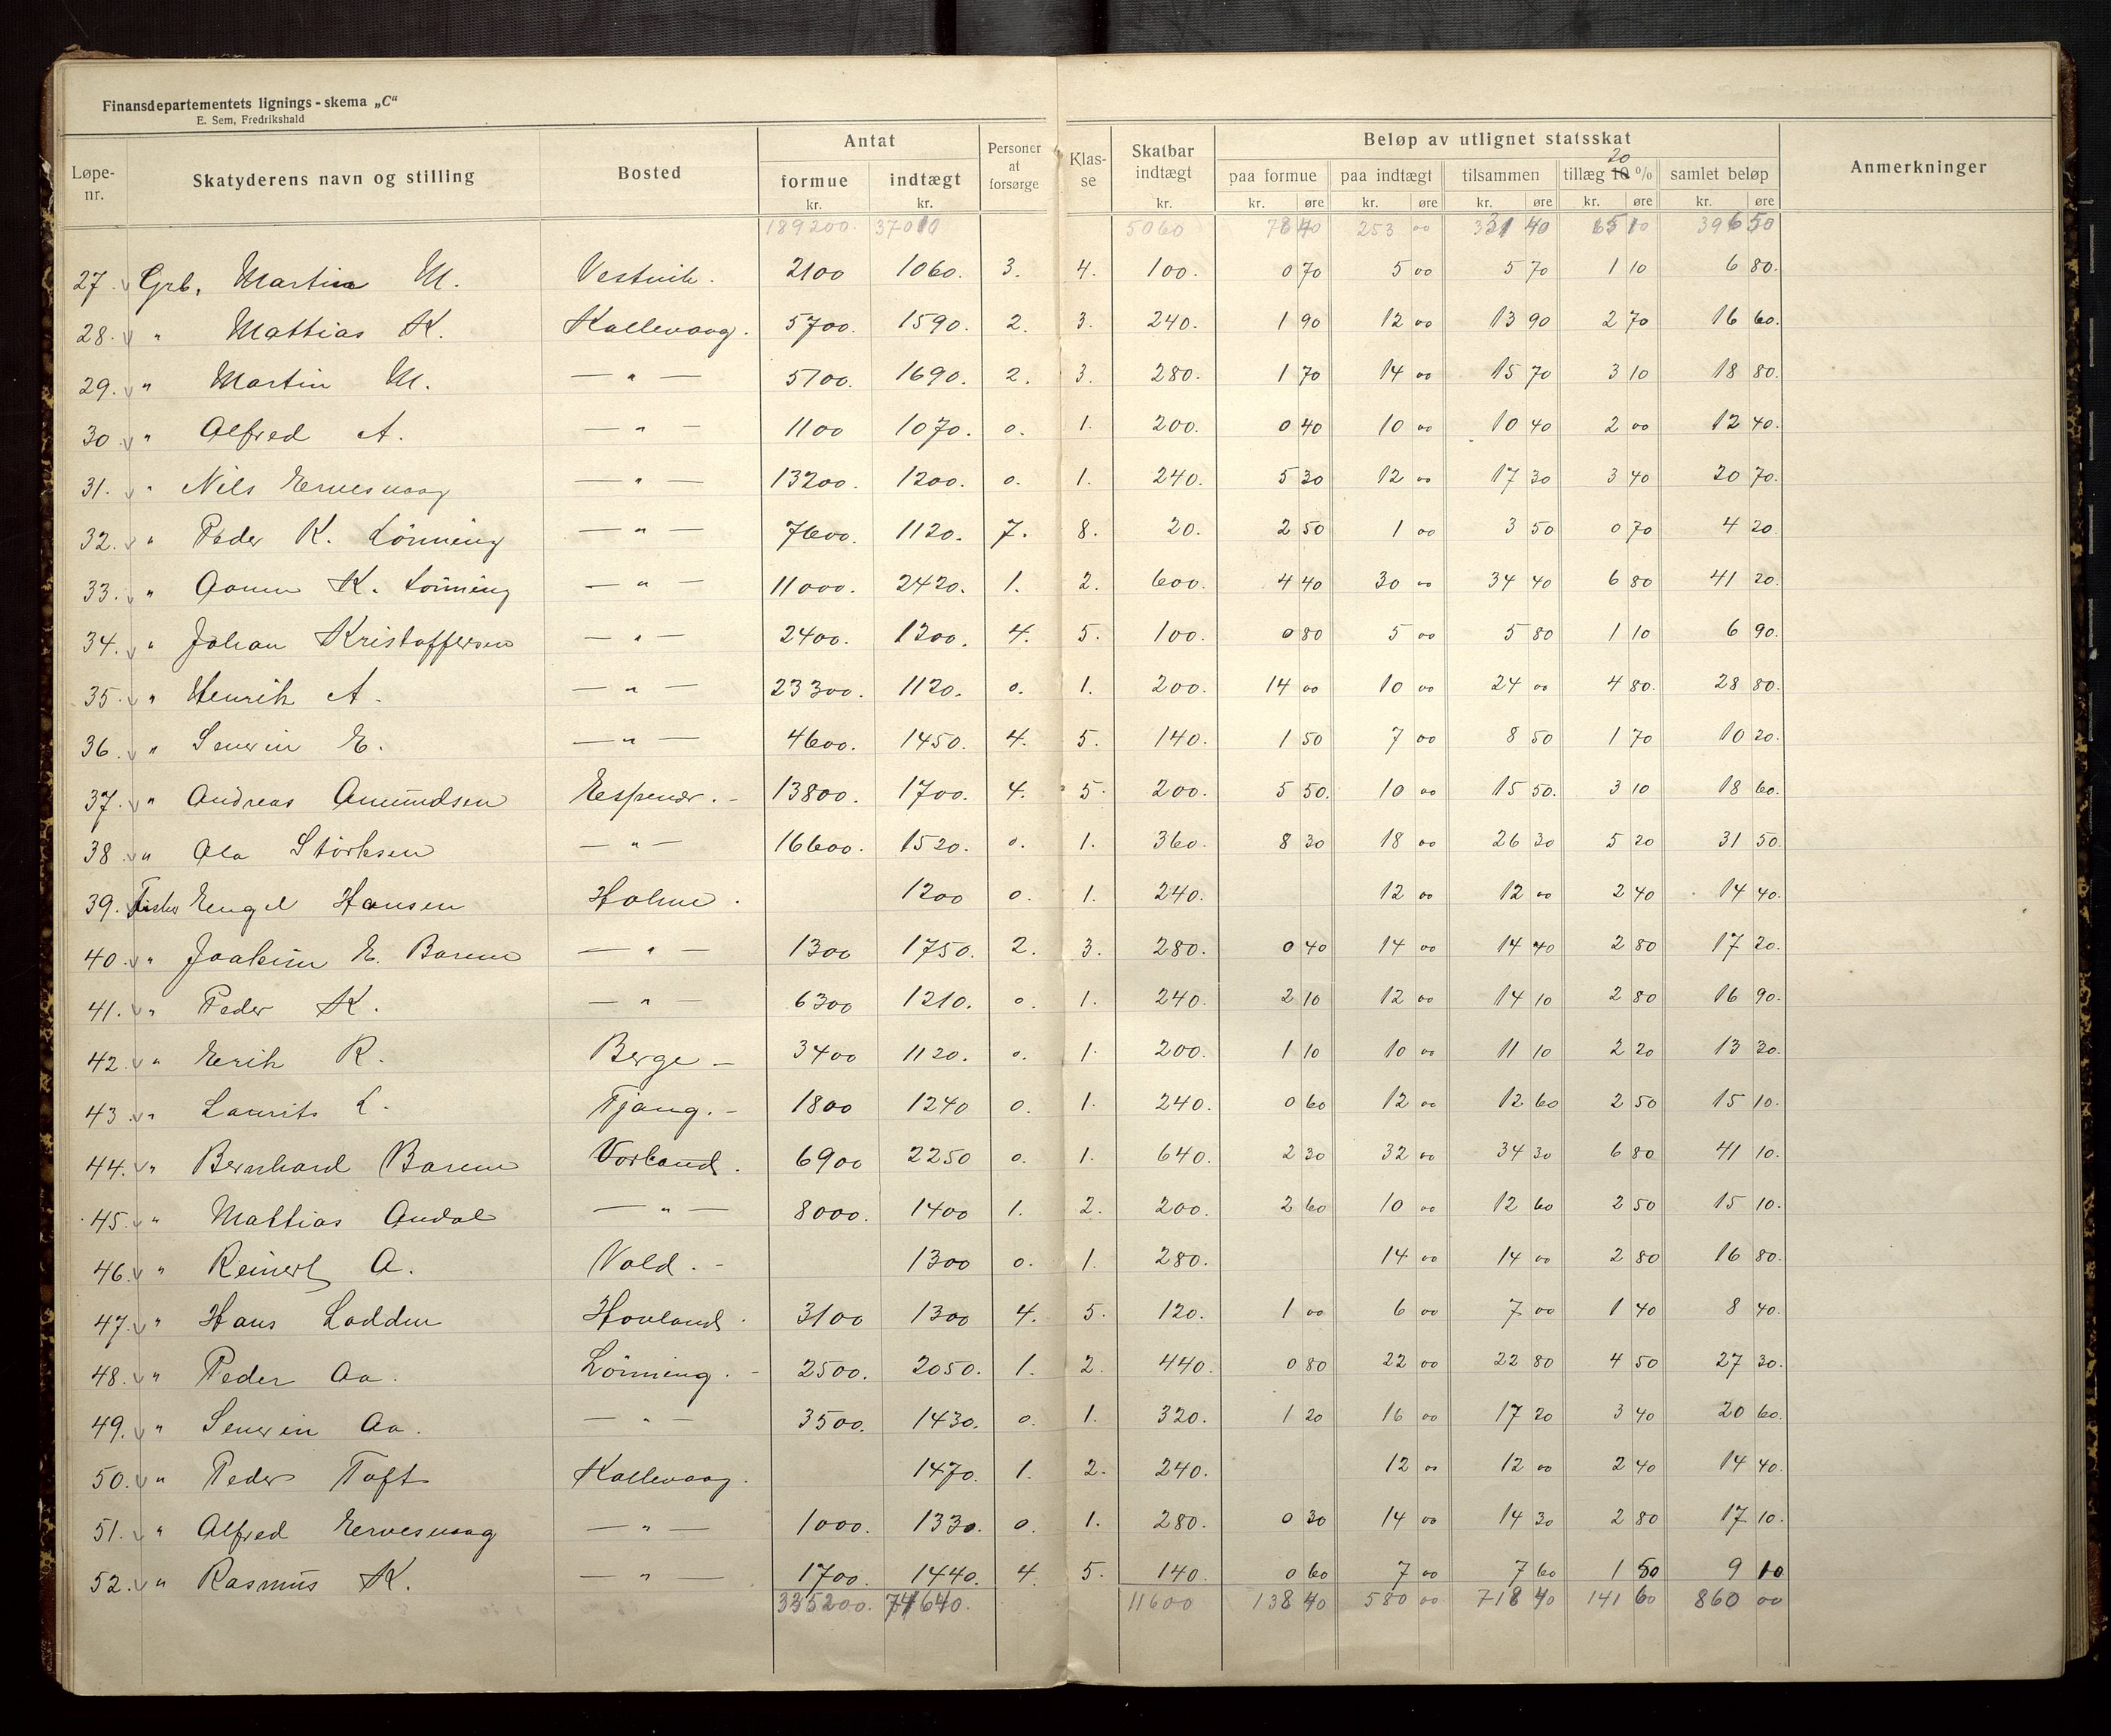 Finansdepartementets lignings-skema „C“
E. Sem, Fredrikshald
Antat Beløp av utlignet statsskat
Løpe-nr. Skatyderens navn og stilling Bosted formue kr. indtægt kr. Personer at forsørge Klas-se Skatbar indtægt kr. paa formue kr. øre paa indtægt kr. øre tilsammen kr. øre tillæg 10 20 % kr. øre samlet beløp kr. øre Anmerkninger
189200. 37010 5060 78 40 253 00 331 40 65 10 396 50
27. Grb. Martin M. Vestvik. 2100 1060. 3. 4. 100. 0 70 5 00 5 70 1 10 6 80.
28. " Mattias K. Kallevaag. 5700. 1590. 2. 3. 240. 1 90 12 00 13 90 2 70 16 60.
29. " Martin M. — " — 5100. 1690. 2. 3. 280. 1 70 14 00 15 70 3 10 18 80.
30. " Alfred A. — " — 1100 1070. 0. 1. 200. 0 40 10 00 10 40 2 00 12 40.
31. " Nils Ervesvaag — " — 13200. 1200. 0. 1. 240. 5 30 12 00 17 30 3 40 20 70.
32. " Peder K. Lönning — " — 7600. 1120. 7. 8. 20. 2 50 1 00 3 50 0 70 4 20.
33. " Aamu K. Lönning — " — 11000. 2420. 1. 2. 600. 4 40 30 00 34 40 6 80 41 20.
34. " Johan Kristoffersen — " — 2400. 1200. 4. 5. 100. 0 80 5 00 5 80 1 10 6 90.
35. " Henrik A. — " — 23300. 1120. 0. 1. 200. 14 00 10 00 24 00 4 80. 28 80.
36. " Severin E. — " — 4600. 1450. 4. 5. 140. 1 50 7 00 8 50 1 70 10 20.
37. " Andreas Amundsen Espevær. 13800. 1700. 4. 5. 200. 5 50. 10 00 15 50. 3 10 18 60.
38. " Ola Störksen — " — 16600. 1520. 0. 1. 360. 8 30 18 00 26 30 5 20 31 50.
39. Fisker Engel Hansen Holme. 1200 0. 1. 240. 12 00 12 00 2 40 14 40.
40. " Joakim E. Barene — " — 1300 1750. 2. 3. 280. 0 40 14 00 14 40 2 80 17 20.
41. " Peder K. — " — 6300 1210. 0. 1. 240. 2 10 12 00 14 10 2 80 16 90.
42. " Erik R. Berge — 3400 1120. 0. 1. 200. 1 10 10 00 11 10 2 20 13 30.
43. " Laurits L. Tjong. — 1800 1240 0. 1. 240. 0 60 12 00 12 60 2 50 15 10.
44. " Bernhard Barene Vorland. 6900 2250 0. 1. 640. 2 30 32 00 34 30 6 80 41 10.
45. " Mattias Andal — " — 8000. 1400 1. 2. 200. 2 60 10 00 12 60 2 50 15 10.
46. " Reinert A. Vold. — 1300 0. 1. 280. 14 00 14 00 2 80 16 80.
47. " Hans Lodden Hovland. 3100 1300 4. 5. 120. 1 00 6 00 7 00 1 40 8 40.
48. " Peder Aa. Lönning. — 2500. 2050. 1. 2. 440. 0 80 22 00 22 80 4 50 27 30.
49. " Severin Aa. — " — 3500. 1430. 0. 1. 320. 1 20 16 00 17 20 3 40 20 60.
50. " Peder Toft Kallevaag. 1470. 1. 2. 240. 12 00 12 00 2 40 14 40.
51. " Alfred Ervesvaag — " — 1000. 1330. 0. 1. 280. 0 30 14 00 14 30 2 80 17 10.
52. " Rasmus K. — " — 1700. 1440. 4. 5. 140. 0 60 7 00 7 60 1 50 9 10
335200. 74640. 11600 138 40 580 00 718 40 141 60 860 00